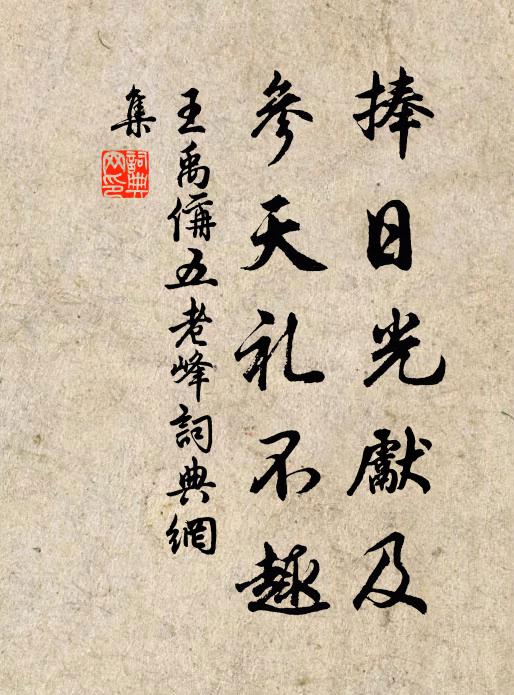 捧日光獻及
參天礼不趣
王禹偁五老峰詞典網
集
詞典
网印